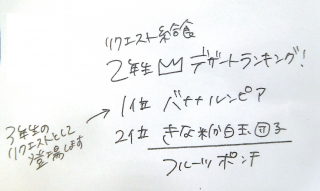 リクエスト給食
2年生 デザートランキング!
1位 バナナルンピア
2位 きな粉白玉団子
フルーツポンチ
3年生の
リクエストとして
登場します